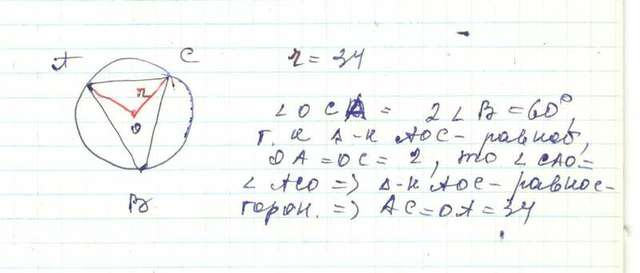 A
C
r = 34
r
O
B
∠ OCA = 2∠B = 60°,
т. к Δ-к AOC - равноб,
OA = OC = r, то ∠CAO =
∠ ACO => Δ-к AOC - равнос-
торон. => AC = OA = 34